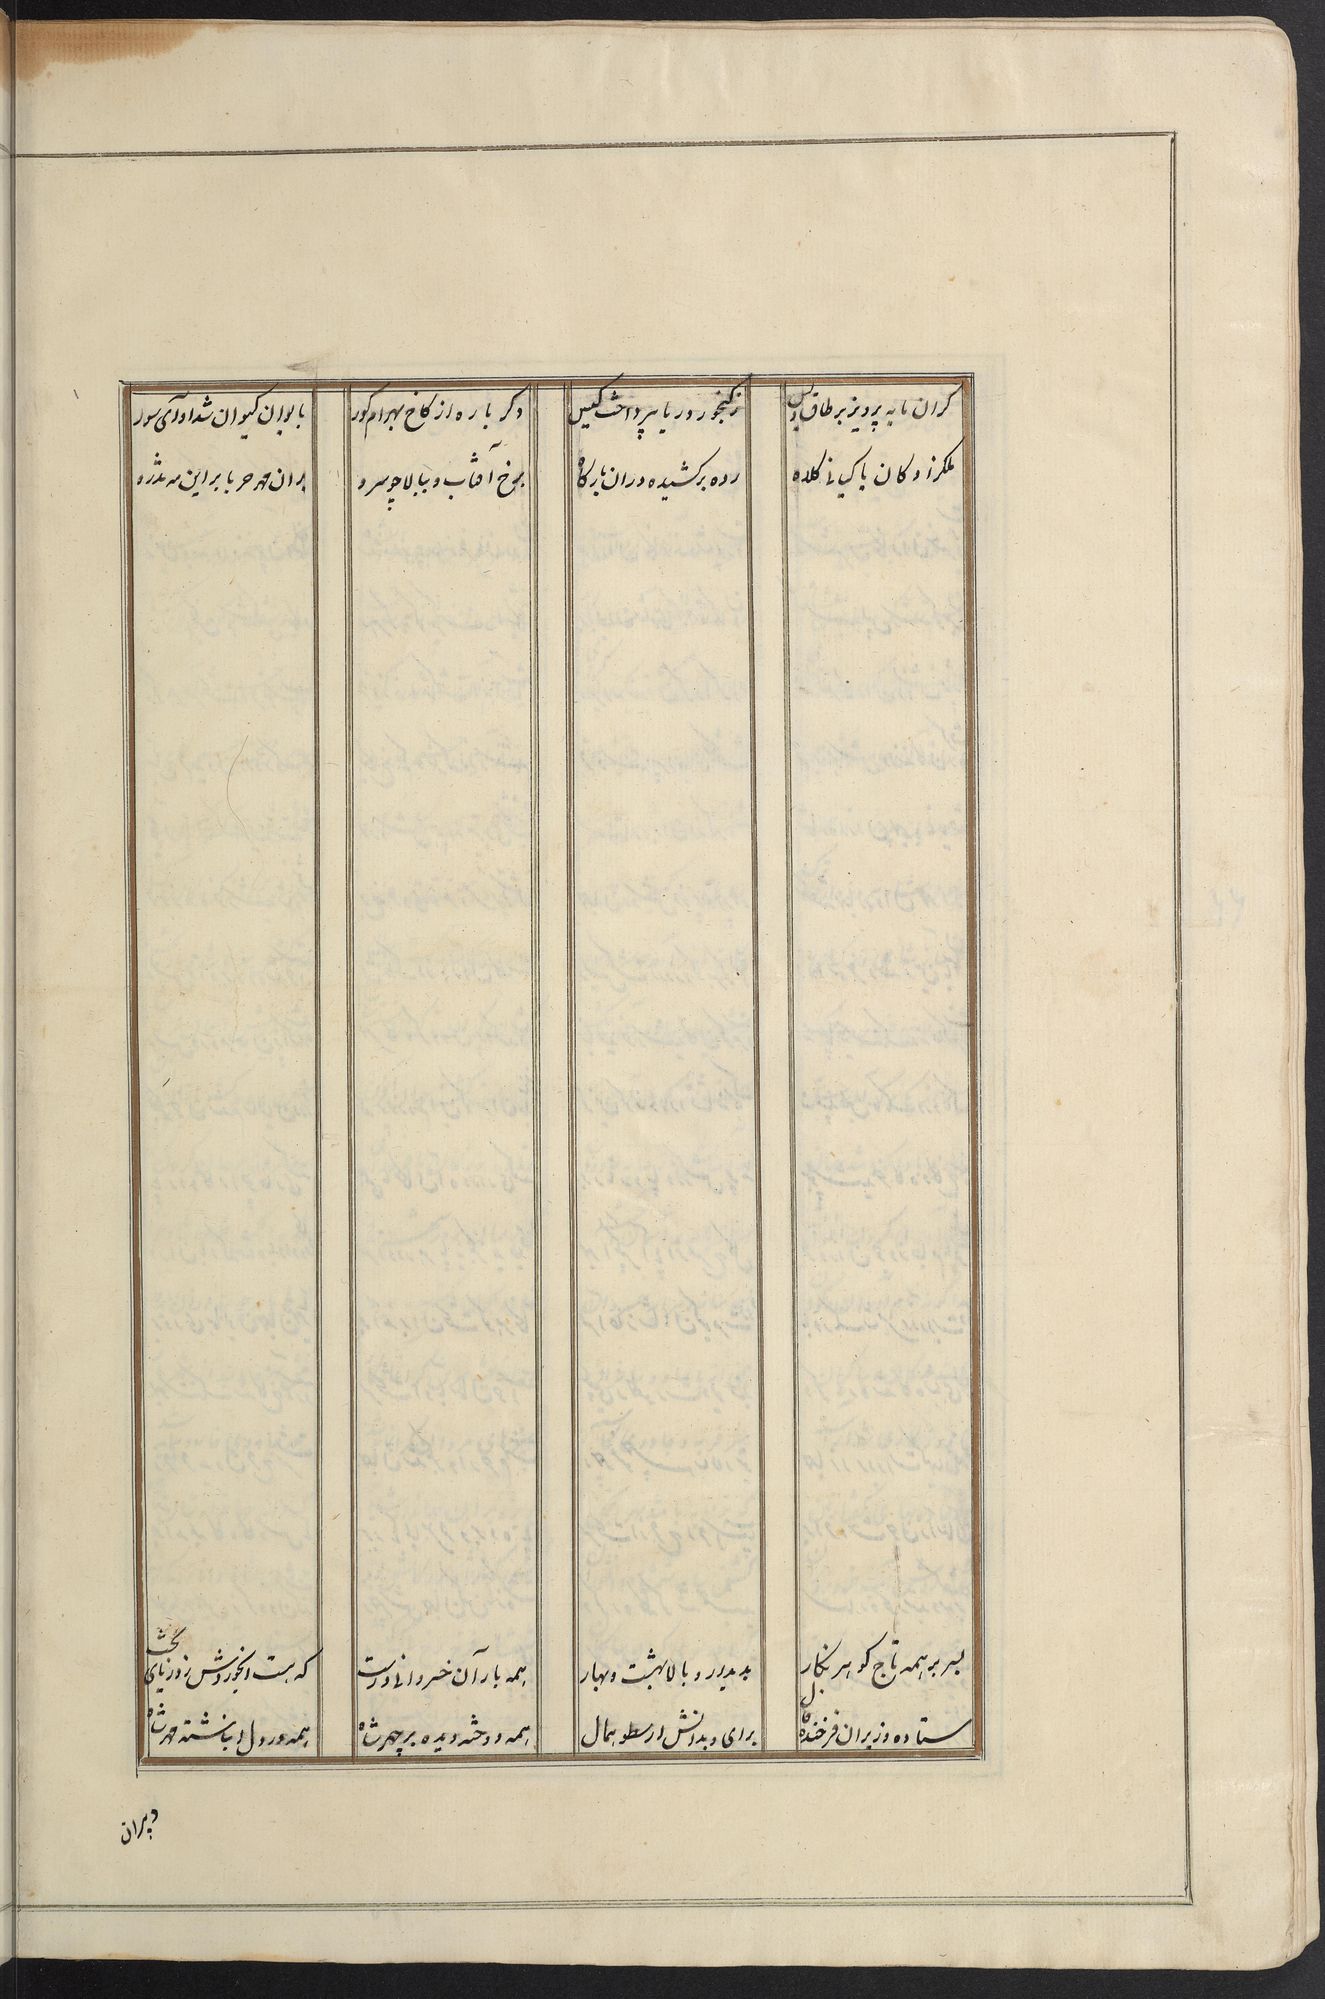 گران مایه پرویز بر طاق دیس ز گنجور دریا بپرداخت کیس دگر باره از کاخ بهرام گور بایوان کیوان شد آوای سور
ملکزادکان با کیانی کلاه رده برکشیده در ان بارکاه برخ آفتاب و ببالا چو سرو بران مهر حربا بر این مه تذرو
بسر بر همه تاج کوهر نکار بدیدار و بالا بهشت و بهار همه بار آن خسروانی درخت که هست ابخوردش ز دریای بخت
ستاده وزیران فرخنده فال برای و بدانش ارسطو همال همه دوخته دیده بر چهر شاه همه در دل انباشته مهر شاه
دبیران